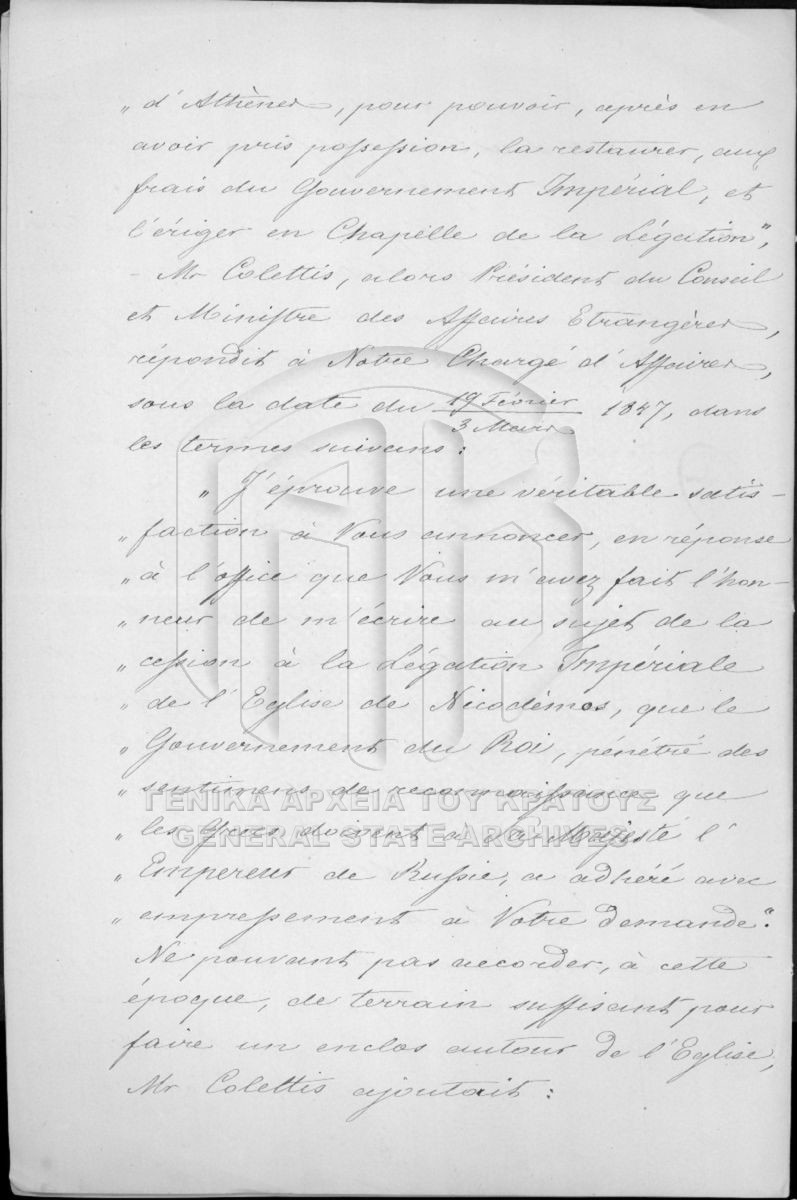 „ d'Athènes, pour pouvoir, après en
avoir pris possession, la restaurer, aux
frais du Gouvernement Impérial, et
l'ériger en Chapelle de la Légation",
- Mr Colettis, alors Président du Conseil
et Ministre des Affaires Etrangères,
répondit à Notre Chargé d'Affaires,
sous la date du 19 Février / 3 Mars 1847, dans
les termes suivans:
„ J'éprouve une véritable satis-
„ faction à Vous annoncer, en réponse
„ à l'office que Vous m'avez fait l'hon-
„ neur de m'écrire au sujet de la
„ cession à la Légation Impériale
„ de l'Eglise de Nicodémos, que le
„ Gouvernement du Roi, pénétré des
„ sentimens de reconnaissance que
„ les Grecs doivent à Sa Majesté l'
„ Empereur de Russie, a adhéré avec
„ empressement à Votre demande".
Ne pouvant pas accorder, à cette
époque, de terrain suffisant pour
faire un enclos autour de l'Eglise,
Mr Colettis ajoutait:
ΓΕΝΙΚΑ ΑΡΧΕΙΑ ΤΟΥ ΚΡΑΤΟΥΣ
GENERAL STATE ARCHIVES